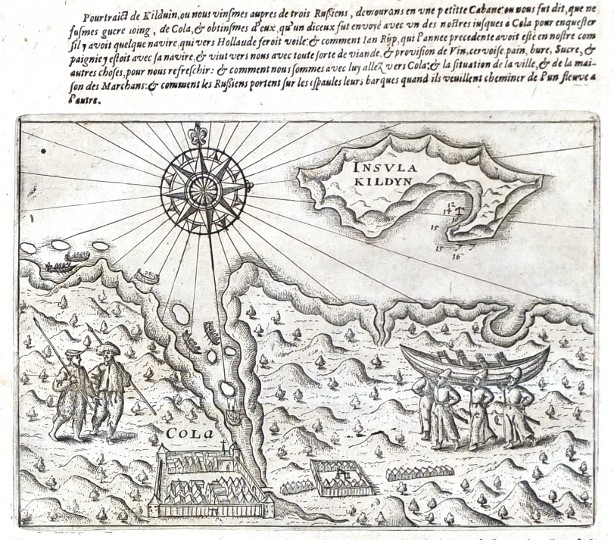 Pourtraict de Kilduin, ou nous vinsmes aupres de trois Russiens, demourans en vne petitte Cabane, ou nous fut dit, que ne
fusmes guere loing, de Cola, & obtinsmes d'eux, qu'un diceux fut envoyé avec vn des nostres iusques a Cola pour enquester
s'il y avoit quelque navire, qui vers Hollande feroit voile: & comment Ian Rÿp, qui l'annee precedente avoit esté en nostre com
paignie y estoit avec sa navire, & viut vers nous avec toute sorte de viande, & provision de Vin, cervoise, pain, bure, Sucre, &
autres choses, pour nous refreschir: & comment nous sommes avec luy allez vers Cola: & la situation de la ville, & de la mai-
son des Marchans: & comment les Russiens portent sur les espaules leurs barques quand ils veuillent cheminer de l'un fleuve a
l'autre.
INSVLA
KILDYN
12
15
15
16
COLa
A